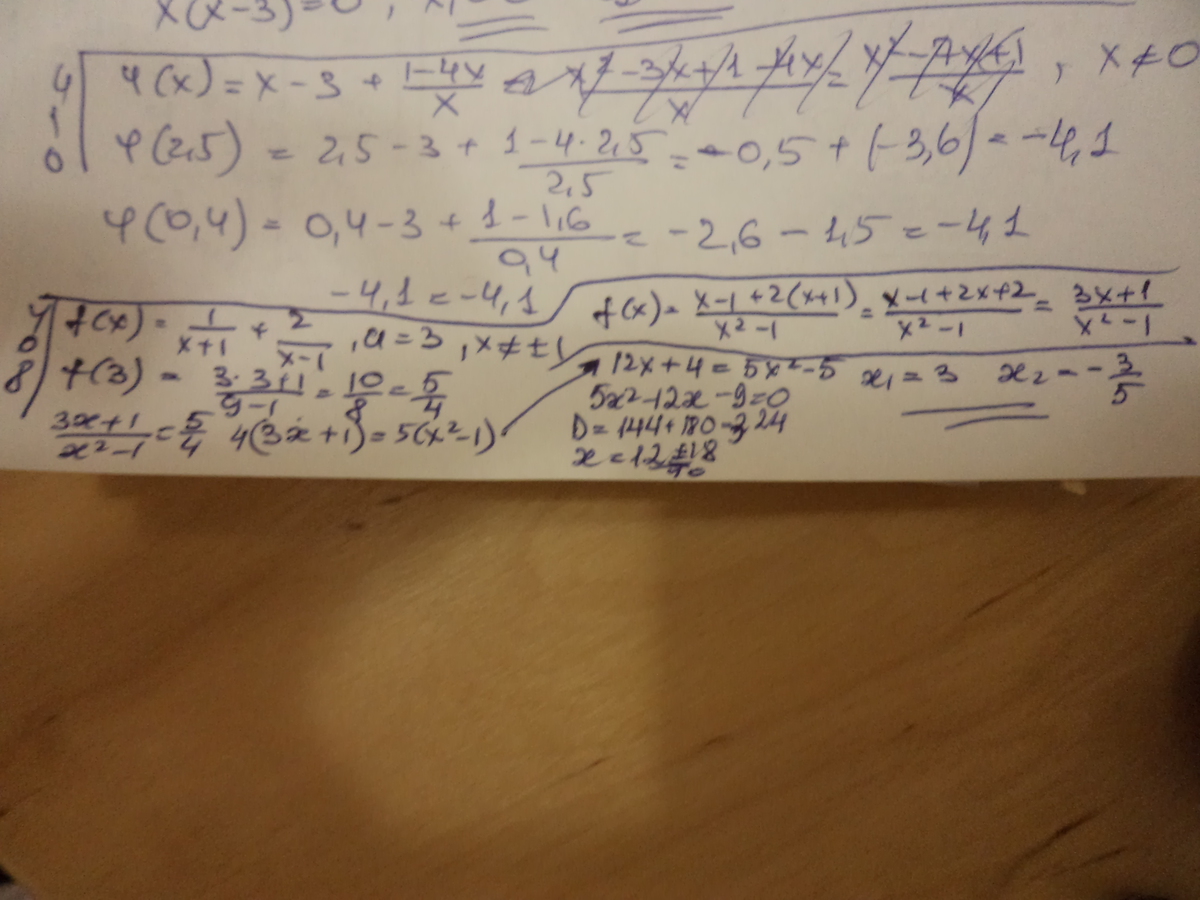 x(x-3)=0, x
410 φ(x) = x - 3 + \frac{1-4x}{x} = \frac{x²-3x+1-4x}{x} = \frac{x²-7x+1}{x}, x ≠ 0
φ(2,5) = 2,5 - 3 + \frac{1-4·2,5}{2,5} = -0,5 + (-3,6) = -4,1
φ(0,4) = 0,4 - 3 + \frac{1-1,6}{0,4} = -2,6 - 1,5 = -4,1
-4,1 = -4,1
408 f(x) = \frac{1}{x+1} + \frac{2}{x-1}, a = 3, x ≠ ±1
f(x) = \frac{x-1+2(x+1)}{x²-1} = \frac{x-1+2x+2}{x²-1} = \frac{3x+1}{x²-1}
f(3) = \frac{3·3+1}{9-1} = \frac{10}{8} = \frac{5}{4}
\frac{3x+1}{x²-1} = \frac{5}{4} 4(3x+1) = 5(x²-1)
12x+4 = 5x²-5 x₁ = 3 x₂ = -\frac{3}{5}
5x²-12x-9=0
D = 144+180=324
x = \frac{12±18}{10}